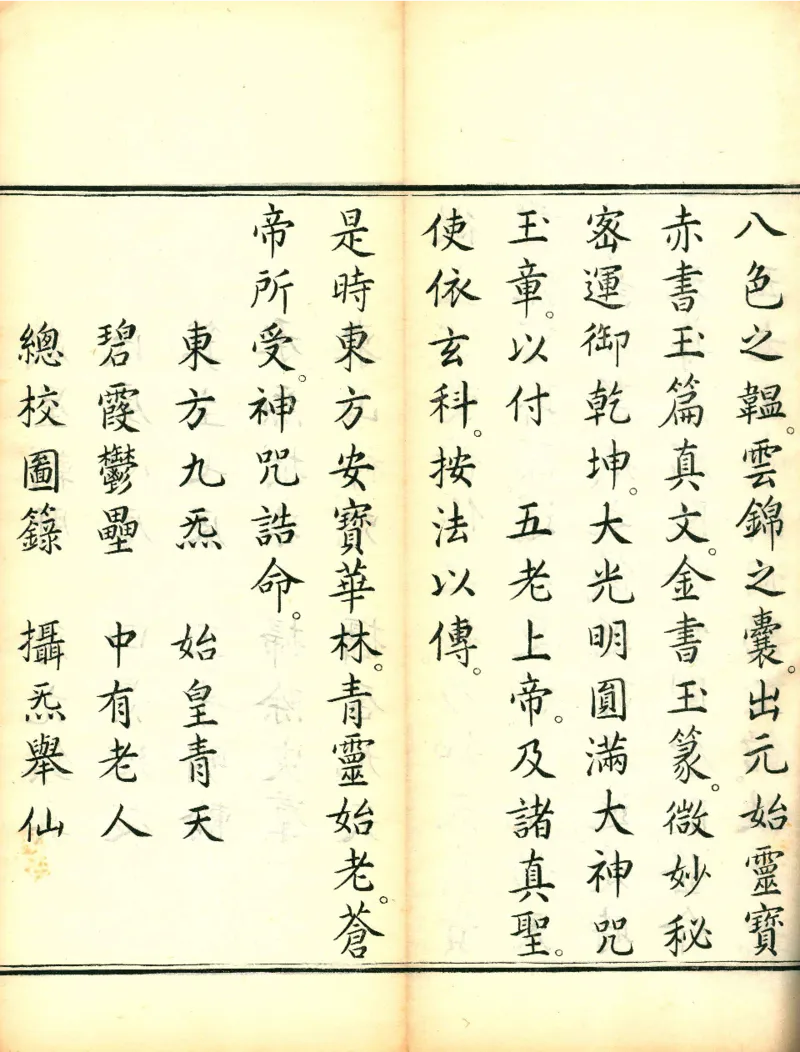 八色之韞。雲錦之囊。出元始靈寶
赤書玉篇真文。金書玉篆。微妙秘
密運御乾坤。大光明圓滿大神咒
玉章。以付　五老上帝。及諸真聖。
使依玄科。按法以傳。
是時東方安寶華林。青靈始老。蒼
帝所受。神咒誥命。
東方九炁　始皇青天
碧霞鬱壘　中有老人
總校圖籙　攝炁舉仙